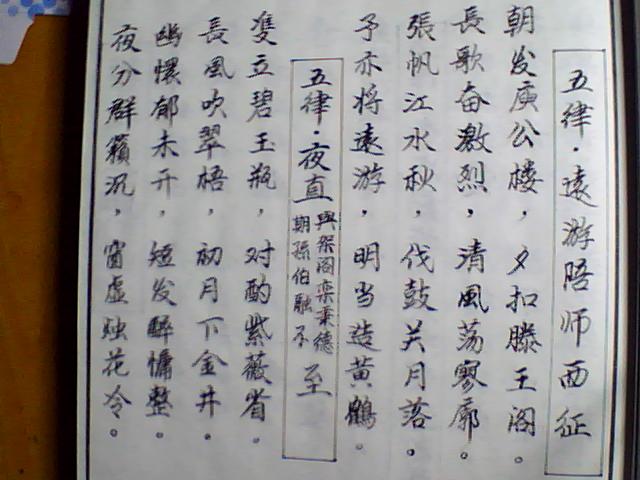 五律·遠游陪师西征
朝发庾公楼，夕扣滕王阁。
長歌奋激烈，清風荡寥廓。
張帆江水秋，伐鼓关月落。
予亦将遠游，明当造黄鶴。
五律·夜直與架阁栾秉德期孫伯融不至
隻立碧玉瓶，对酌紫薇省。
長風吹翠梧，初月下金井。
幽懷郁未开，短发醉慵整。
夜分群籟沉，窗虚烛花冷。